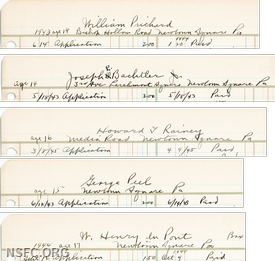 William Prichard
1943 age 14 Bishop Hollow Road Newtown Square Pa
6/14 Application 200 1944 1/20 Paid
Joseph E Bechtler Jr.
age 14 3rd Ave Larchmont Square Newtown Square Pa
5/10/43 Application 200 5/10/43 Paid
Howard T Rainey
age 16 Media Road Newtown Square Pa
3/8/45 Application 4/9/45 Paid
George Peel
age 15 Newtown Square Pa
6/10/43 Application 200 6/14/43 Paid
W. Henry du Pont Box
1944 age 17 Newtown Square Pa
Application 150 Oct 9 Paid
NSHC.ORG